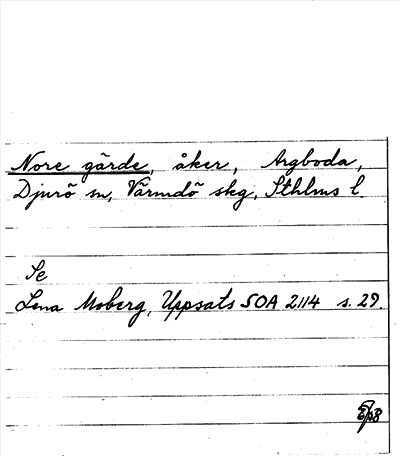 Nore gärde, åker, Argboda,
Djurö sn, Värmdö skg, Sthlms l.
Se
Lena Moberg, Uppsats SOA 2114 s. 29.